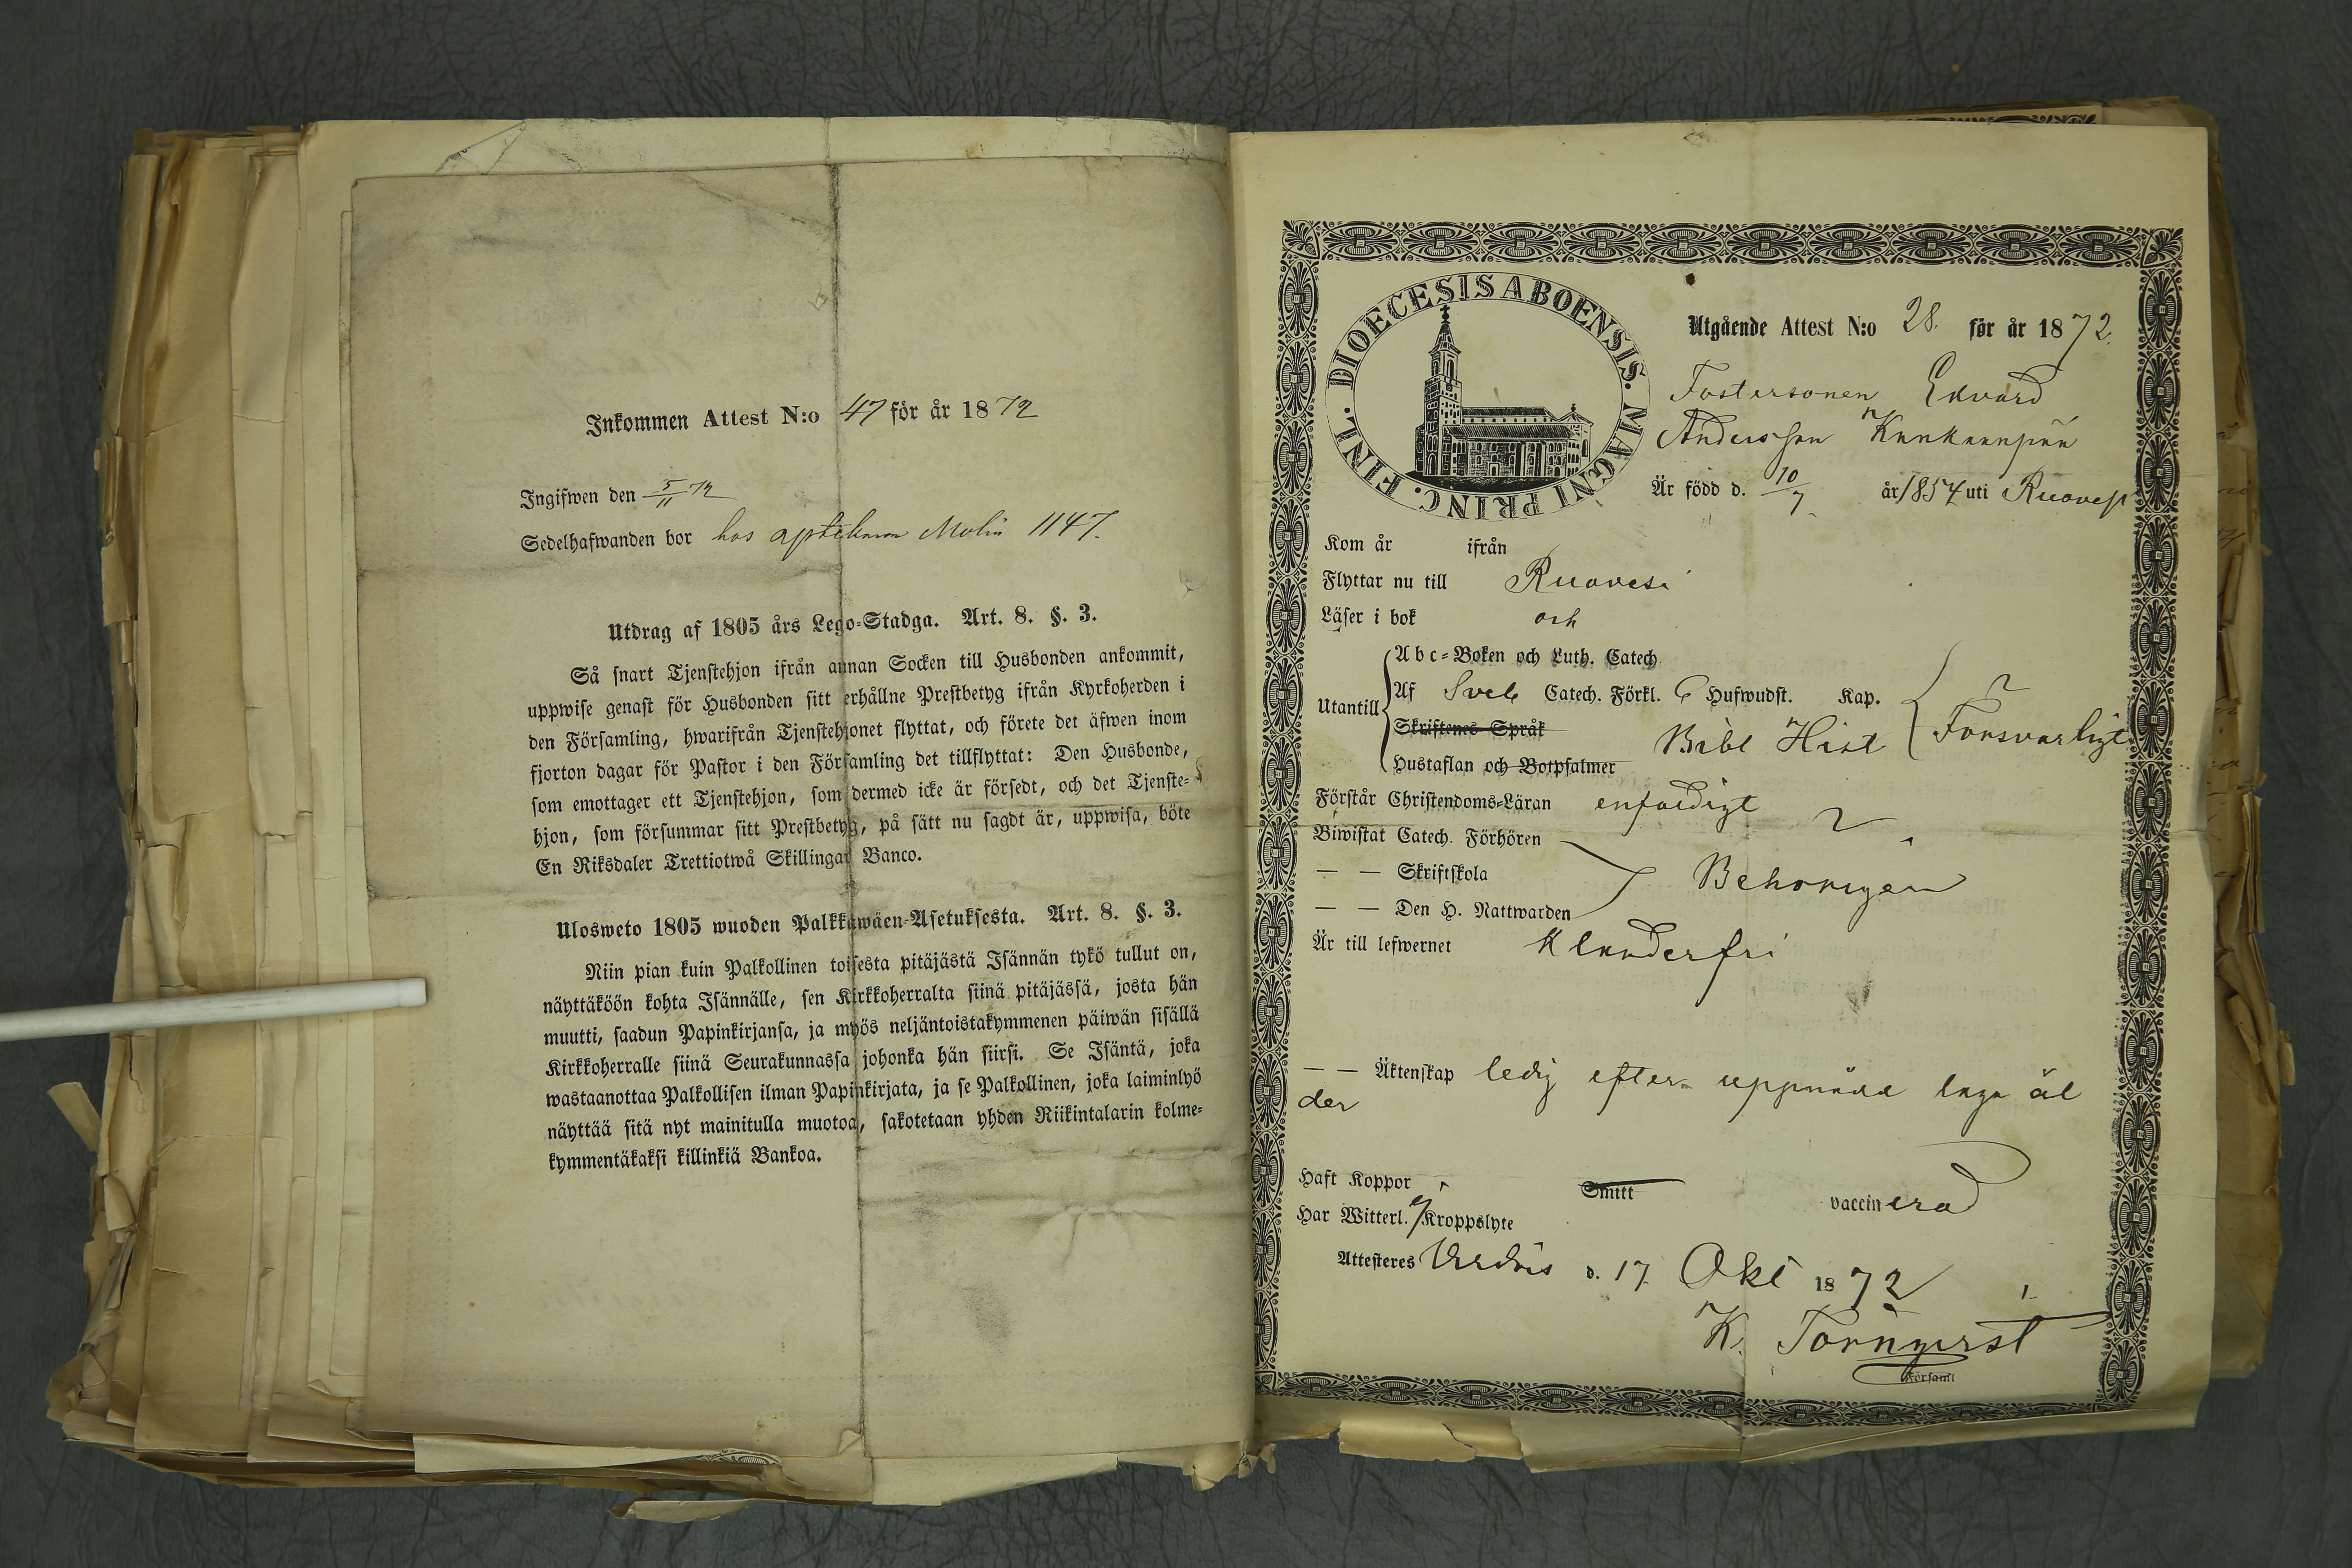 Inkommen Attest N:o 47 för år 1872
Ingifwen den 5/11 72
Sedelhafwanden bor hos Molin 1147.
Utdrag af 1805 års Lego-Stadga. Art. 8. §. 3.
Så snart Tjenstehjon ifrån annan Socken till Husbonden ankommit,
uppwise genast för Husbonden sitt erhållne Prestbetyg ifrån Kyrkoherden i
den Församling, hwarifrån Tjenstehjonet flyttat, och förete det äfwen inom
fjorton dagar för Pastor i den Församling det tillflyttat: Den Husbonde,
som emottager ett Tjenstehjon, som dermed icke är försedt, och det Tjenste-
hjon, som försummar sitt Prestbetyg, på sätt nu sagdt är, uppwisa, böte
En Riksdaler Trettiotwå Skillingar Banco.
Ulosweto 1805 wuoden Palkkawäen-Asetuksesta. Art. 8. §. 3.
Niin pian kuin Palkollinen toisesta pitäjästä Isännän tykö tullut on,
näyttäköön kohta Isännälle, sen Kirkkoherralta siinä pitäjässä, josta hän
muutti, saadun Papinkirjansa, ja myös neljäntoistakymmenen päiwän sisällä
Kirkkoherralle siinä Seurakunnassa johonka hän siirsi. Se Isäntä, joka
wastaanottaa Palkollisen ilman Papinkirjata, ja se Palkollinen, joka laiminlyö
näyttää sitä nyt mainitulla muotoa, sakotetaan yhden Riikintalarin kolme-
kymmentäkaksi killinkiä Bankoa.
DIOECESIS ABOENSIS. MAGNI PRINC. FINL.
Utgående Attest N:o 28. för år 1872.
Fostersonen Edvard
Andersson Kunkaanpää
Är född d. 10/7 år 1854 uti Ruovesi
Kom år ifrån
Flyttar nu till Ruovesi
Läser i bok och
Utantill
Abc-Boken och Luth. Catech.
Af Sveb Catech. Förkl. 6 Hufwudst. Kap.
Skriftenes Språk Bibl Hist Försvarligt
Hustaflan och Botpsalmer
Förstår Christendoms-Läran enfaldigt
Biwistat Catech. Förhören
— — Skriftskola Behörigen
— — Den H. Nattwarden
Är till lefwernet Klanderfri
— — Äktenskap ledig efter uppnådd laga ål
der
Haft Koppor Smitt vaccinerad
Har Witterl. ej Kroppslyte
Attesteres Virdois d. 17 Okt 1872
K. Törnqvist
Församl